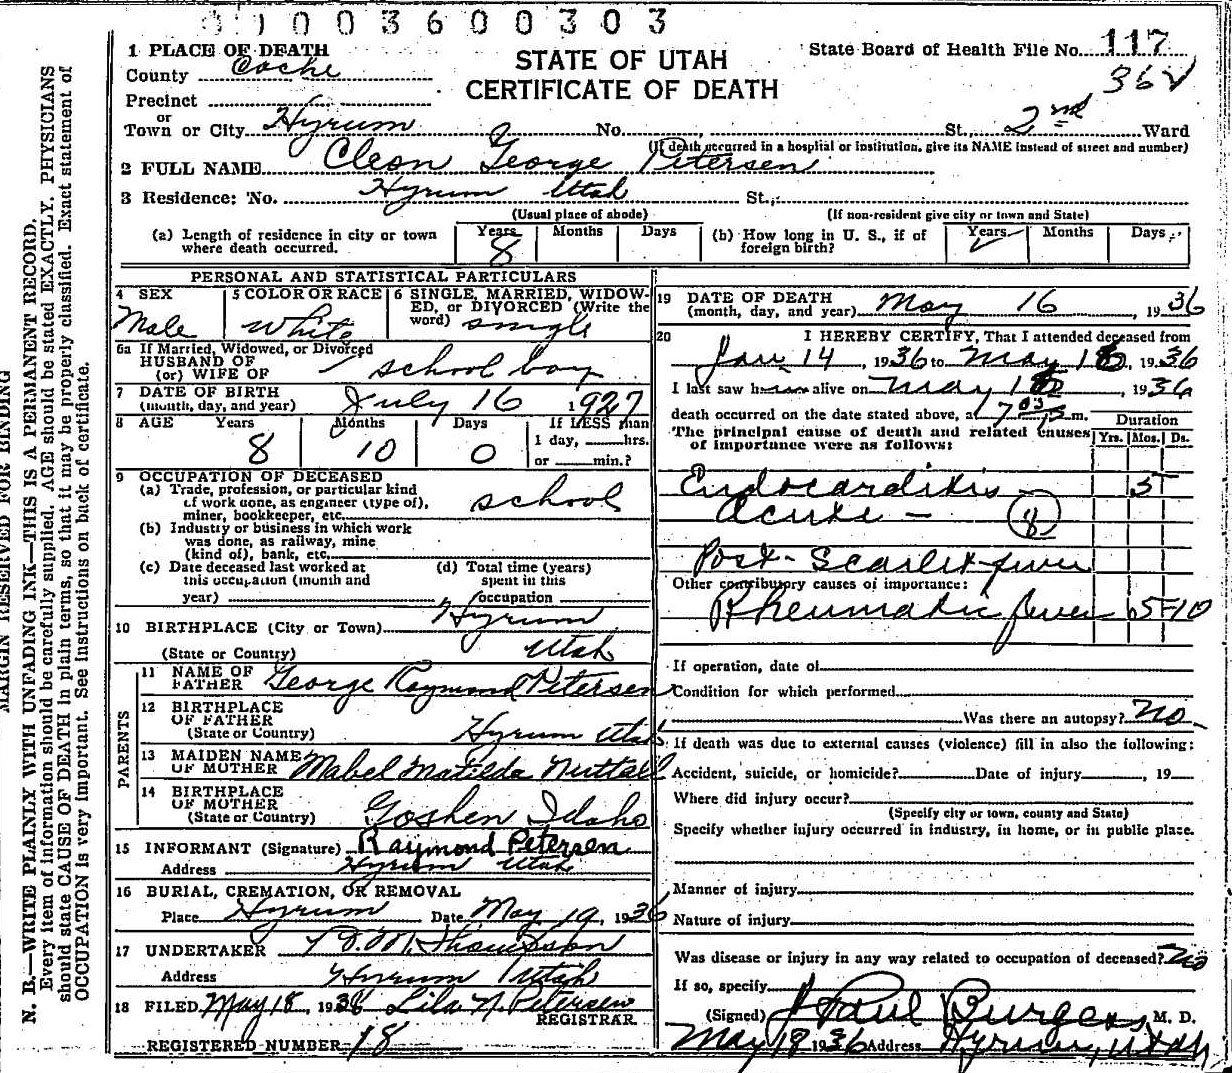 003600303
1 PLACE OF DEATH
County Cache
STATE OF UTAH
CERTIFICATE OF DEATH
State Board of Health File No. 117
362
Precinct
or
Town or City Hyrum No. , St., 2nd Ward
(If death occurred in a hospital or institution, give its NAME instead of street and number)
2 FULL NAME Cleon George Petersen
3 Residence: No. Hyrum Utah St.,
(Usual place of abode) (If non-resident give city or town and State)
(a) Length of residence in city or town where death occurred. Years 8 Months Days (b) How long in U. S., if of foreign birth? Years Months Days
PERSONAL AND STATISTICAL PARTICULARS
4 SEX Male 5 COLOR OR RACE White 6 SINGLE, MARRIED, WIDOWED, OR DIVORCED (Write the word) single
6a If Married, Widowed, or Divorced
HUSBAND OF
(or) WIFE OF school boy
7 DATE OF BIRTH
(month, day, and year) July 16 1927
8 AGE Years 8 Months 10 Days 0 If LESS than 1 day, hrs. or min.?
9 OCCUPATION OF DECEASED
(a) Trade, profession, or particular kind
of work done, as engineer (type of),
miner, bookkeeper, etc. school
(b) Industry or business in which work
was done, as railway, mine
(kind of), bank, etc.
(c) Date deceased last worked at
this occupation (month and
year)
(d) Total time (years)
spent in this
occupation
10 BIRTHPLACE (City or Town) Hyrum
(State or Country) Utah
PARENTS
11 NAME OF FATHER George Raymond Petersen
12 BIRTHPLACE
OF FATHER
(State or Country) Hyrum Utah
13 MAIDEN NAME
OF MOTHER Mabel Matilda Nuttall
14 BIRTHPLACE
OF MOTHER
(State or Country) Goshen Idaho
15 INFORMANT (Signature) Raymond Petersen
Address Hyrum Utah
16 BURIAL, CREMATION, OR REMOVAL
Place Hyrum Date May 19, 1936
17 UNDERTAKER Thompson
Address Hyrum Utah
18 FILED May 18, 1936 Lila N. Petersen
REGISTRAR
REGISTERED NUMBER 18
19 DATE OF DEATH
(month, day, and year) May 16, 1936
20 I HEREBY CERTIFY, That I attended deceased from
Jan 14, 1936 to May 1, 1936
I last saw him alive on May 1, 1936
death occurred on the date stated above, at 7 m.
The principal cause of death and related causes of importance were as follows:
Duration
Yrs. Mos. Ds.
Endocarditis 5
acute — 8
Post-Scarlet fever
Other contributory causes of importance:
Rheumatic fever 5 10
If operation, date of
Condition for which performed
Was there an autopsy? No
If death was due to external causes (violence) fill in also the following:
Accident, suicide, or homicide? Date of injury , 19
Where did injury occur?
(Specify city or town, county and State)
Specify whether injury occurred in industry, in home, or in public place.
Manner of injury
Nature of injury
Was disease or injury in any way related to occupation of deceased? No
If so, specify
(Signed) J Paul Burgess, M. D.
May 18 1936 Address Hyrum, Utah
MARGIN RESERVED FOR BINDING
N. B.—WRITE PLAINLY WITH UNFADING INK—THIS IS A PERMANENT RECORD.
Every item of information should be carefully supplied. AGE should be stated EXACTLY. PHYSICIANS
should state CAUSE OF DEATH in plain terms, so that it may be properly classified. Exact statement of
OCCUPATION is very important. See instructions on back of certificate.